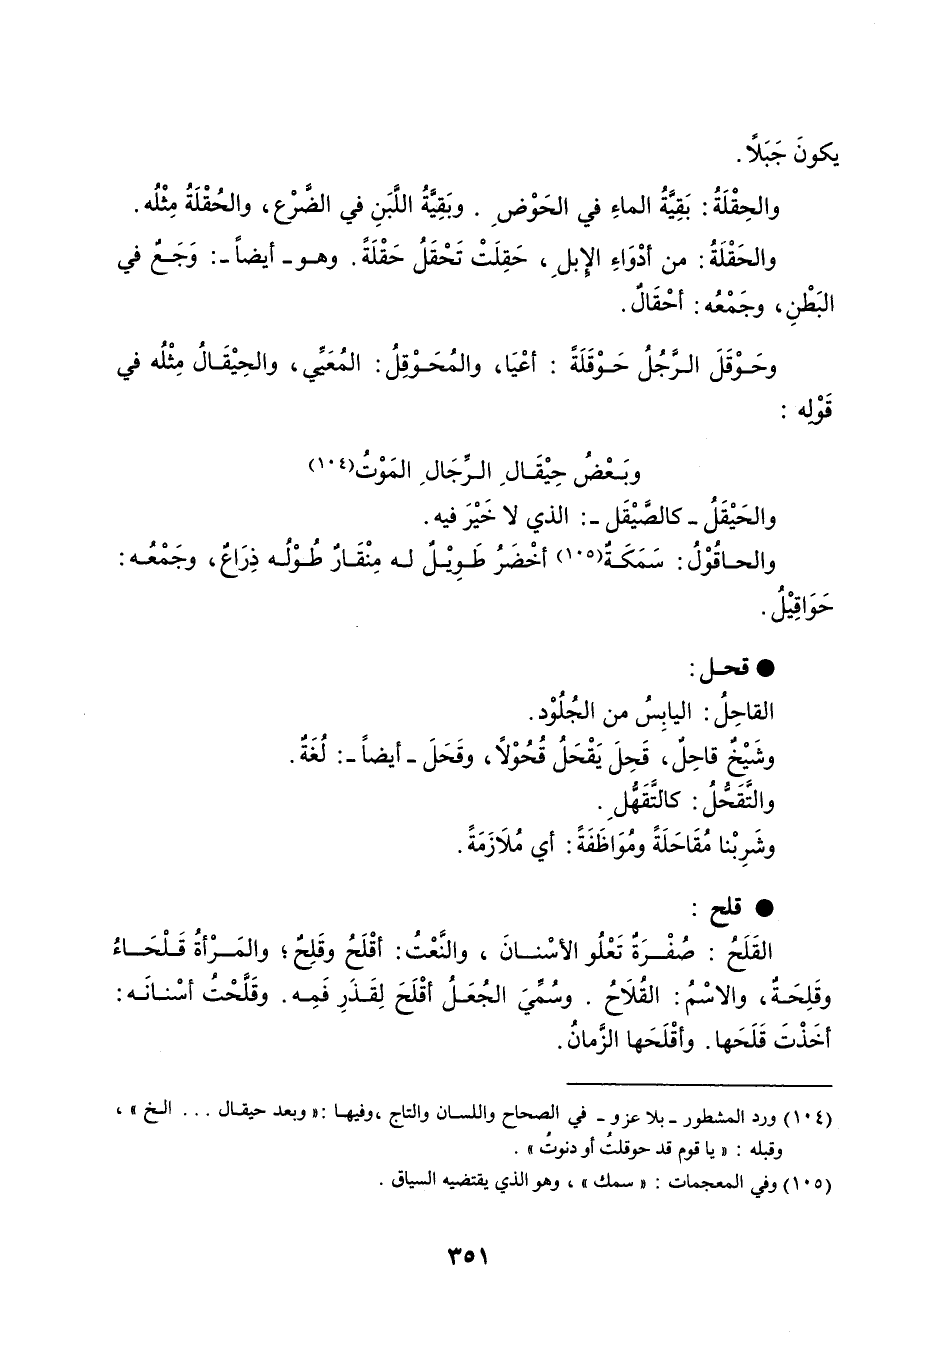 يكونَ جَبَلاً.
والحِقْلَةُ: بَقِيَّةُ الماءِ في الحَوْضِ. وبَقِيَّةُ اللَّبَنِ في الضَّرْعِ، والحُقْلَةُ مِثْلُه.
والحَقْلَةُ: من أدْوَاءِ الإبلِ، حَقِلَتْ تَحْقَلُ حَقْلَةً. وهـو ـ أيضاً ـ: وَجَعٌ في
البَطْنِ، وجَمْعُه: أحْقَالٌ.
وحَـوْقَلَ الـرَّجُلُ حَـوْقَلَةً : أعْيَا، والمُحَـوْقِلُ: المُعَيِّي، والحِيْقَـالُ مِثْلُه في
قَوْلِه :
وبَـعْضُ حِيْقَـالِ الـرِّجَالِ المَوْتُ(١٠٤)
والحَيْقَلُ ـ كالصَّيْقَلِ ـ: الذي لا خَيْرَ فيه.
والحـاقُوْلُ: سَمَكَـةٌ(١٠٥) أخْضَرُ طَـوِيْـلٌ لـه مِنْقَـارٌ طُـوْلُـه ذِرَاعٌ، وجَمْعُـه:
حَوَاقِيْلُ.
● قحـل:
القاحِلُ: اليابِسُ من الجُلُوْدِ.
وشَيْخٌ قاحِلٌ، قَحِلَ يَقْحَلُ قُحُوْلاً، وقَحَلَ ـ أيضاً ـ: لُغَةٌ.
والتَّقَحُّلُ: كالتَّقَهُّلِ.
وشَرِبْنا مُقَاحَلَةً ومُوَاظَفَةً: أي مُلَازَمَةً.
● قلح :
القَلَحُ : صُفْـرَةٌ تَعْلُو الأسْنـانَ ، والنَّعْتُ: أقْلَحُ وقَلِحٌ؛ والمَـرْأةُ قَـلْحَـاءُ
وقَلِحَـةٌ، والاسْمُ: القُلَاحُ . وسُمِّيَ الجُعَـلُ أقْلَحَ لِقَـذَرِ فَمِـه. وقَلَّحْتُ أسْنـانَـه:
أخَذْتَ قَلَحَها. وأقْلَحَها الزَّمانُ.
(١٠٤) ورد المشطور ـ بلا عزو ـ في الصحاح واللسان والتاج ،وفيهـا :« وبعد حيقـال ... الـخ » ،
وقبله : « يا قوم قد حوقلتُ أو دنوتُ » .
(١٠٥) وفي المعجمات : « سمك » ، وهو الذي يقتضيه السياق .
٣٥١